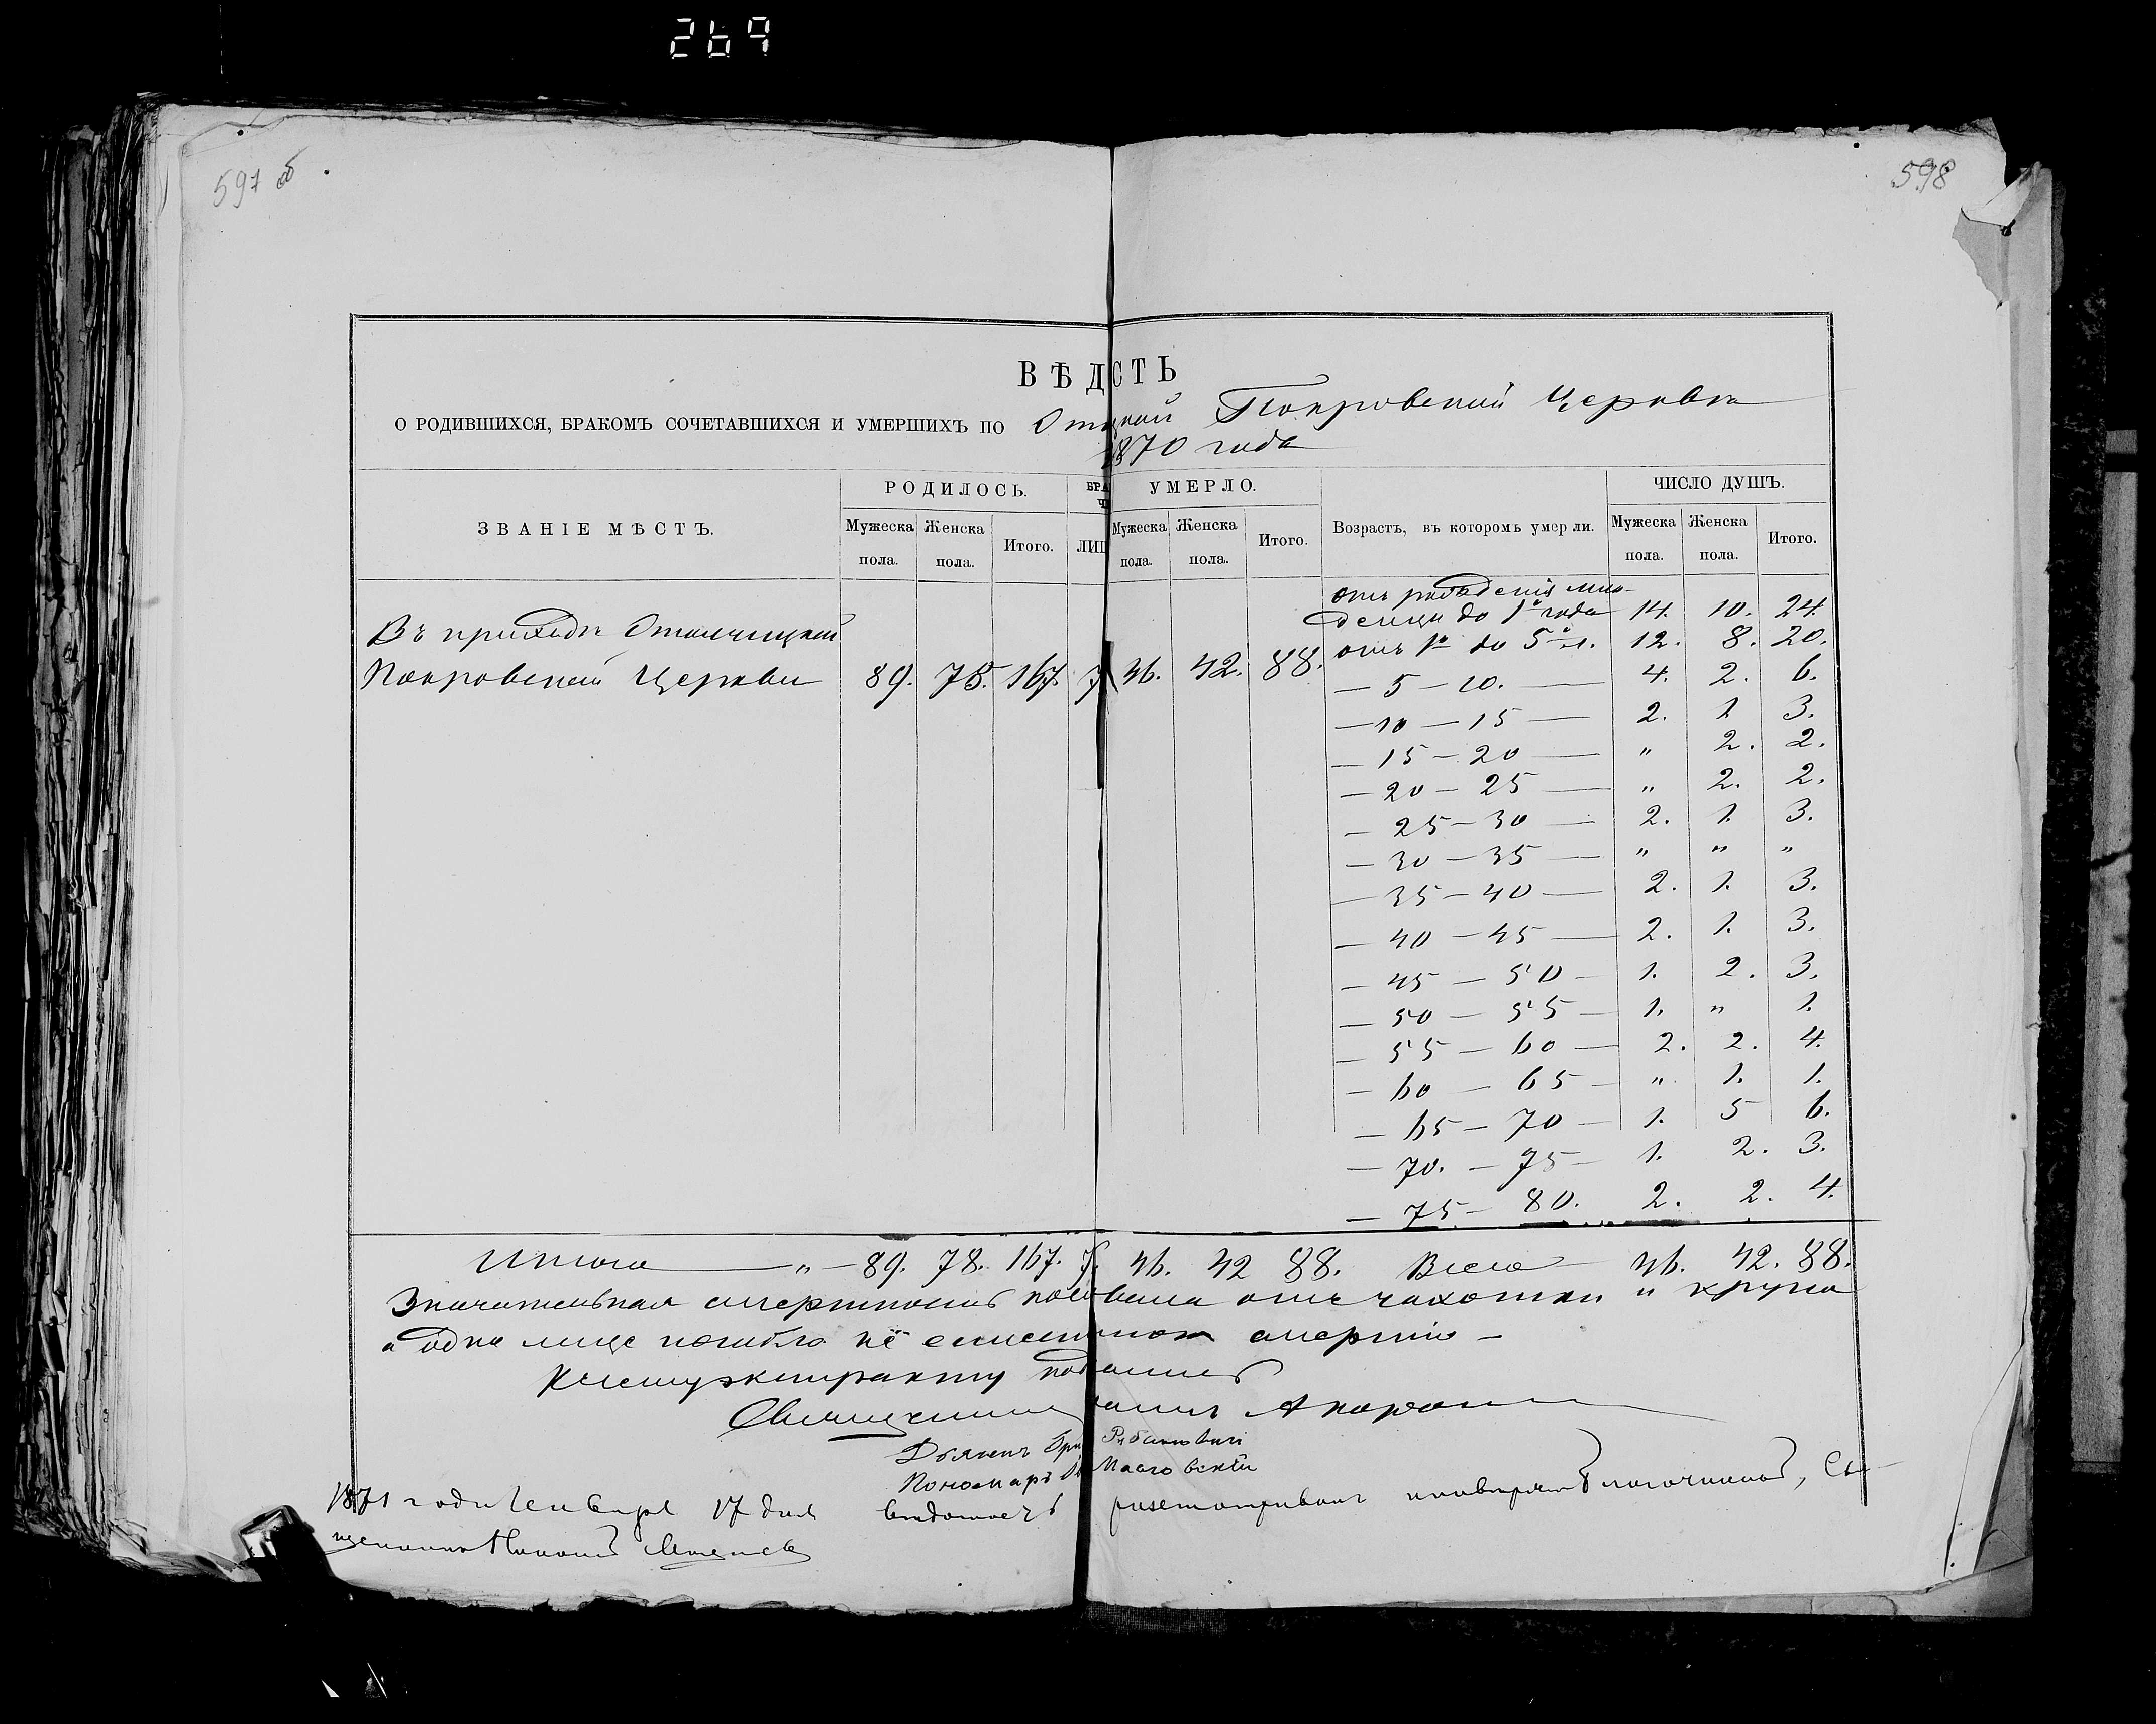 269
597 об
598
ВѢД СТЬ
О РОДИВШИХСЯ, БРАКОМЪ СОЧЕТАВШИХСЯ И УМЕРШИХЪ ПО Покровской Церкви
1870 года
ЗВАНІЕ МѢСТЪ. РОДИЛОСЬ. БРА УМЕРЛО. Возрастъ, въ которомъ умерли. ЧИСЛО ДУШЪ.
Мужеска пола. Женска пола. Итого. Мужеска пола. Женска пола. Итого. Мужеска пола. Женска пола. Итого.
отъ рожденія мла-
денцы до 1го года 14. 10. 24.
Въ приходѣ
отъ 1го до 5 л. 12. 8. 20.
Покровской Церкви 89. 78. 167. 7 46. 42. 88.
— 5 — 10. — 4. 2. 6.
— 10 — 15 — 2. 1 3.
— 15 — 20 — " 2. 2.
— 20 — 25 — " 2. 2.
— 25 — 30 — 2. 1. 3.
— 30 — 35 — " " "
— 35 — 40 — 2. 1. 3.
— 40 — 45 — 2. 1. 3.
— 45 — 50 — 1. 2. 3.
— 50 — 55 — 1. " 1.
— 55 — 60 — 2. 2. 4.
— 60 — 65 — " 1. 1.
— 65 — 70 — 1. 5 6.
— 70. — 75 — 1. 2. 3.
— 75 — 80. 2. 2. 4.
Итого — " — 89. 78. 167. 7. 46. 42 88. Всего 46. 42. 88.
Значительная смертность отъ чахотки и крупа
а одно лице погибло не смертію —
Къ сему экстракту
Священникъ
Дьячекъ
Пономарь
1871 года Генваря 17 дня вѣдомость разсматривалъ и повѣрялъ Благочинный, Свя-
щенникъ